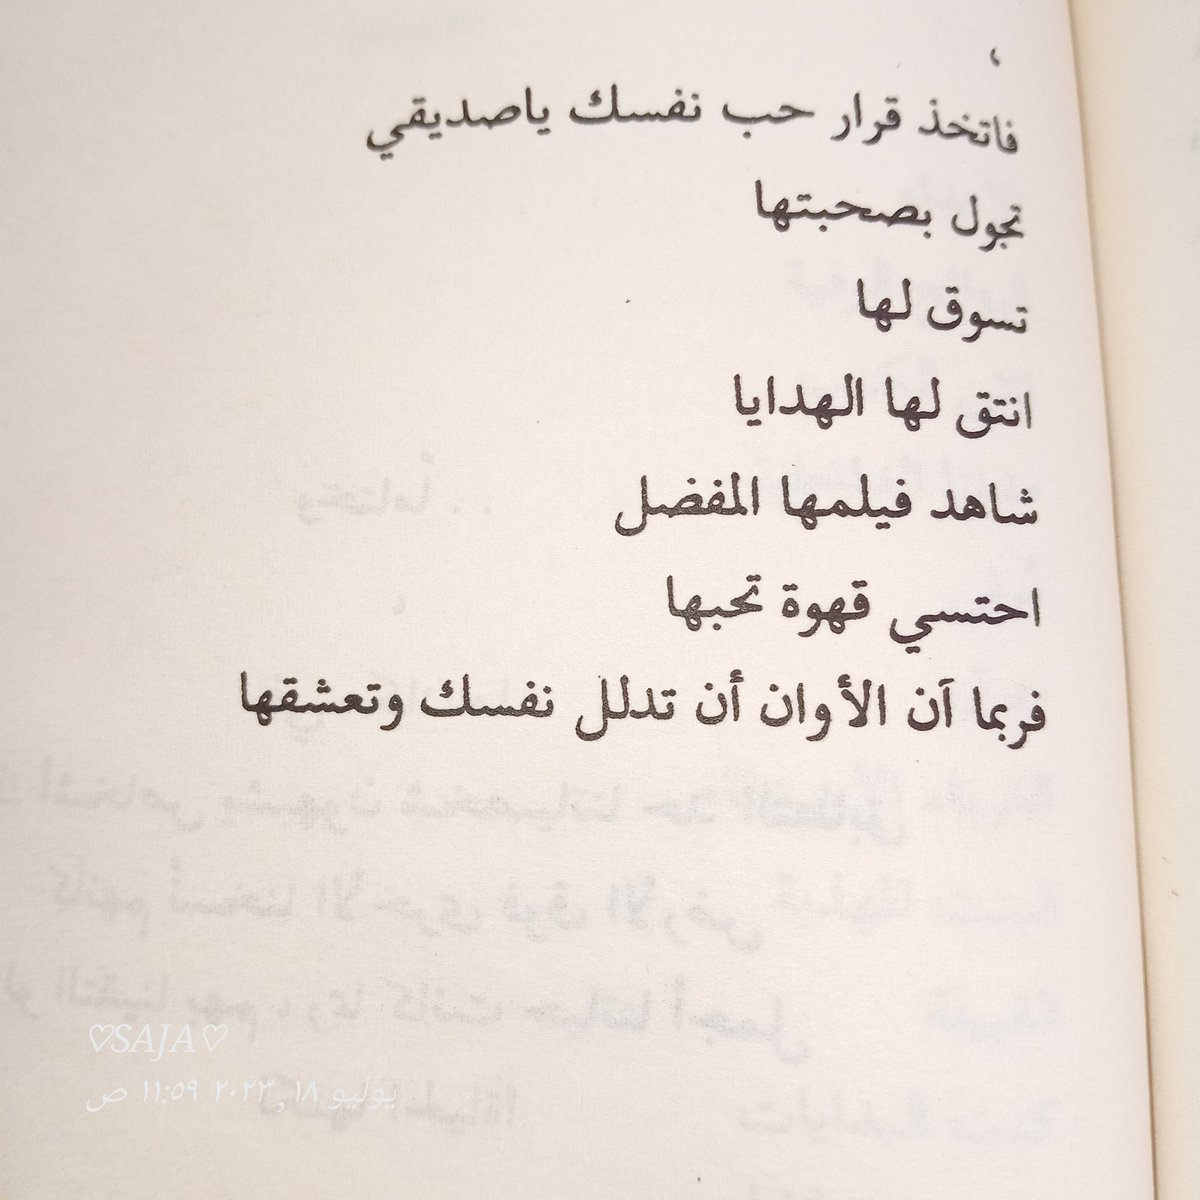 ،
فاتخذ قرار حب نفسك ياصديقي
تجول بصحبتها
تسوق لها
انتق لها الهدايا
شاهد فيلمها المفضل
احتسي قهوة تحبها
فربما آن الأوان أن تدلل نفسك وتعشقها
♡SAJA♡
يوليو ١٨, ٢٠٢٣ ١١:٥٩ ص